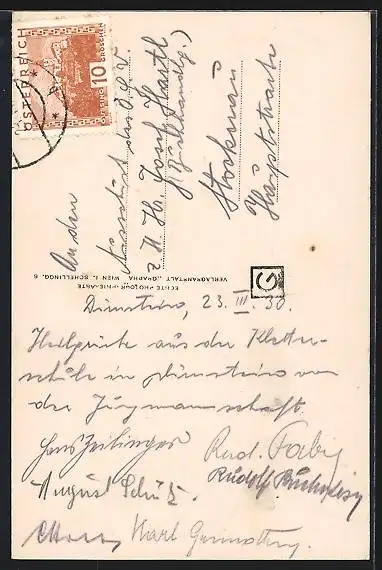 ÖSTERREICH
10 GROSCHEN
An den
Ausschuß des Ö.T.V.
z. H. H. Josef Hartl
(Buchhandlg.)
Stockerau
Hauptstraße
ECHTE PHOTOGRAPHIE-KARTE
VERLAGSANSTALT „GRAPHA" WIEN I., SCHELLINGG. 6
G
Dürnstein, 23. III. 30.
Heilgrüße aus der Kletter-
schule in Dürnstein von
der Jungmannschaft.
Hans Zeilinger
Rud. Faby
August Schütz.
Rudolf
Karl